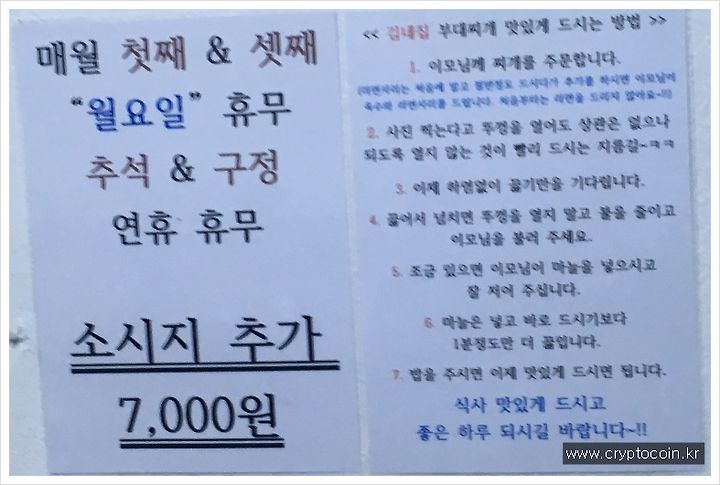 매월 첫째 & 셋째
“월요일” 휴무
추석 & 구정
연휴 휴무
소시지 추가
7,000원
<< 김네집 부대찌개 맛있게 드시는 방법 >>
1. 이모님께 찌개를 주문합니다.
(라면사리는 처음에 말고 절반정도 드시다가 추가를 하시면 이모님이
육수와 라면사리를 드립니다. 처음부터는 라면을 드리지 않아요~!!)
2. 사진 찍는다고 뚜껑을 열어도 상관은 없으나
되도록 열지 않는 것이 빨리 드시는 지름길~ㅋㅋ
3. 이제 하염없이 끓기만을 기다립니다.
4. 끓어서 넘치면 뚜껑을 열지 말고 불을 줄이고
이모님을 불러 주세요.
5. 조금 있으면 이모님이 마늘을 넣으시고
잘 저어 주십니다.
6. 마늘은 넣고 바로 드시기보다
1분정도만 더 끓입니다.
7. 밥을 주시면 이제 맛있게 드시면 됩니다.
식사 맛있게 드시고
좋은 하루 되시길 바랍니다~!!
www.cryptocoin.kr